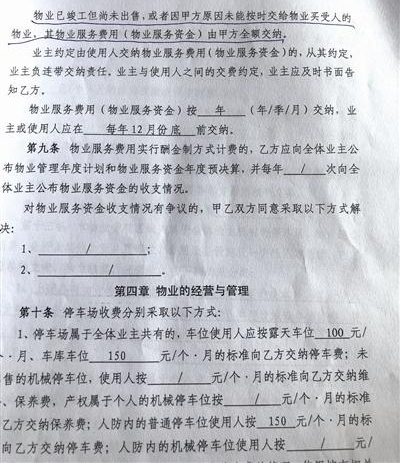 物业已竣工但尚未出售，或者因甲方原因未能按时交给物业买受人的
物业，其物业服务费用（物业服务资金）由甲方全额交纳。
业主约定由使用人交纳物业服务费用(物业服务资金)的，从其约定，
业主负连带交纳责任。业主与使用人之间的交费约定，业主应及时书面告
知乙方。
物业服务费用（物业服务资金）按 年 （年/季/月）交纳，业
主或使用人应在 每年12月份底 前交纳。
第九条 物业服务费用实行酬金制方式计费的，乙方应向全体业主公
布物业管理年度计划和物业服务资金年度预决算，并每年 / 次向全
体业主公布物业服务资金的收支情况。
对物业服务资金收支情况有争议的，甲乙双方同意采取以下方式解
决：
1、 / ；
2、 / 。
第四章 物业的经营与管理
第十条 停车场收费分别采取以下方式：
1、停车场属于全体业主共有的，车位使用人应按露天车位 100 元/
·月、车库车位 150 元/个·月的标准向乙方交纳停车费；未
售的机械停车位，使用人按 / 元/个·月的标准向乙方交纳维
、保养费，产权属于个人的机械停车位按 / 元/个·月的标准
乙方交纳保养费；人防内的普通停车位使用人按 150 元/个·月的标
向乙方交纳停车费；人防内的机械停车位使用人按 / 元/